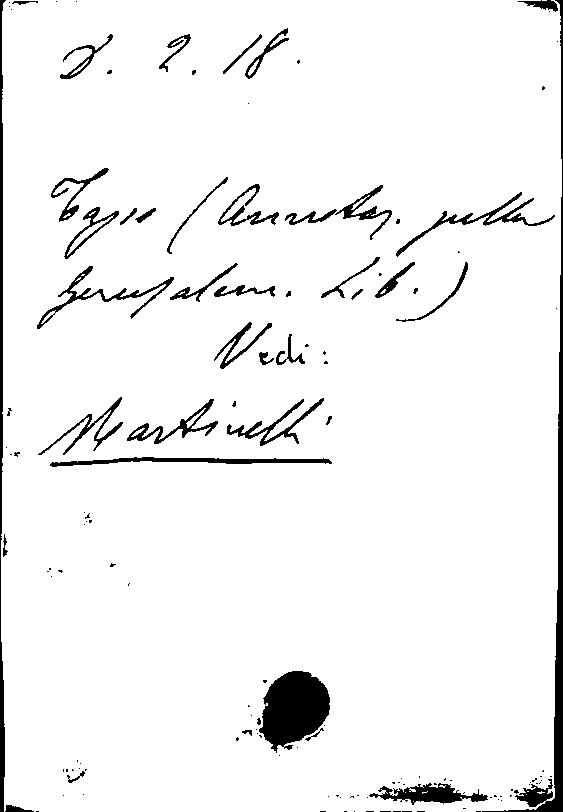 D. 2. 18.
Tasso (Annotaz. sulla
Gerusalem. Lib.)
Vedi:
Martinelli